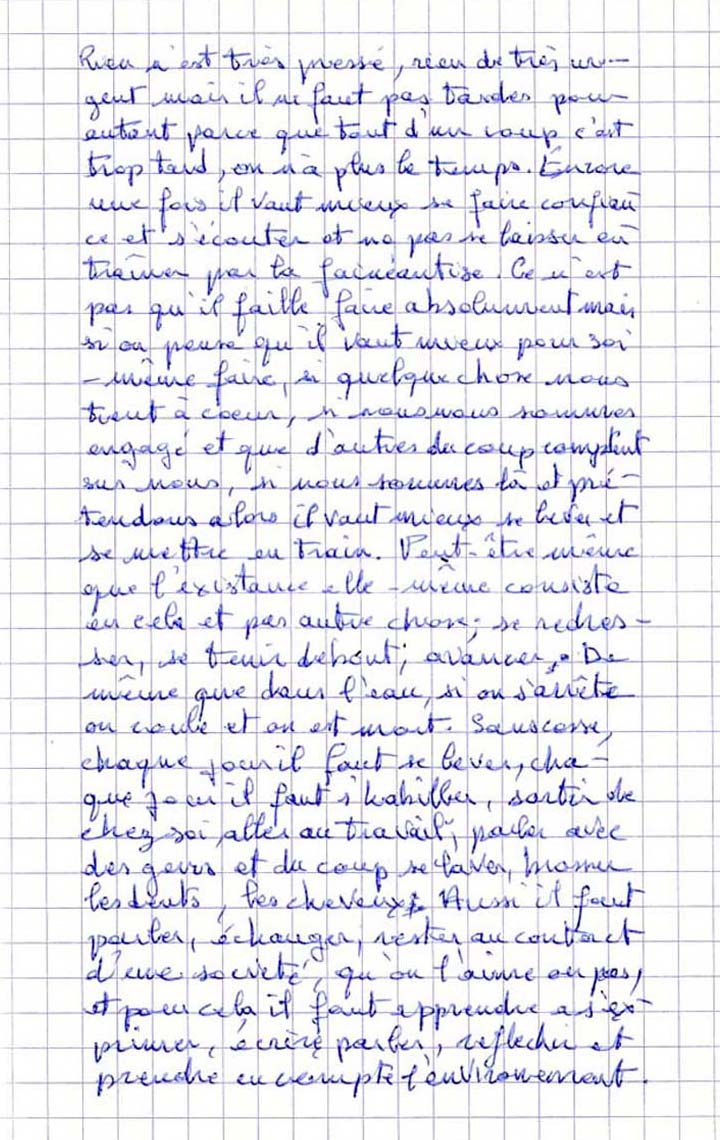 Rien n'est très pressé, rien de très ur-
gent mais il ne faut pas tarder pour
autant parce que tout d'un coup c'est
trop tard, on n'a plus le temps. Encore
une fois il vaut mieux se faire confian
ce et s'écouter et ne pas se laisser en
traîner par la fainéantise. Ce n'est
pas qu'il faille faire absolument mais
si on pense qu'il vaut mieux pour soi
-même faire, si quelque chose nous
tient à coeur, si nous nous sommes
engagé et que d'autres du coup comptent
sur nous, si nous sommes là et pré-
tendons alors il vaut mieux se lever et
se mettre en train. Peut-être même
que l'existance elle-même consiste
en cela et pas autre chose; se redres-
ser, se tenir debout, avancer. De
même que dans l'eau, si on s'arrête
on coule et on est mort. Sans cesse,
chaque jour il faut se lever, cha-
que jour il faut s'habiller, sortir de
chez soi, aller au travail, parler avec
des gens et du coup se laver, brosser
les dents, les cheveux. Aussi il faut
parler, échanger, rester au contact
d'une société, qu'on l'aime ou pas,
et pour cela il faut apprendre a s'ex-
primer, écrire parler, réflechir et
prendre en compte l'environement.